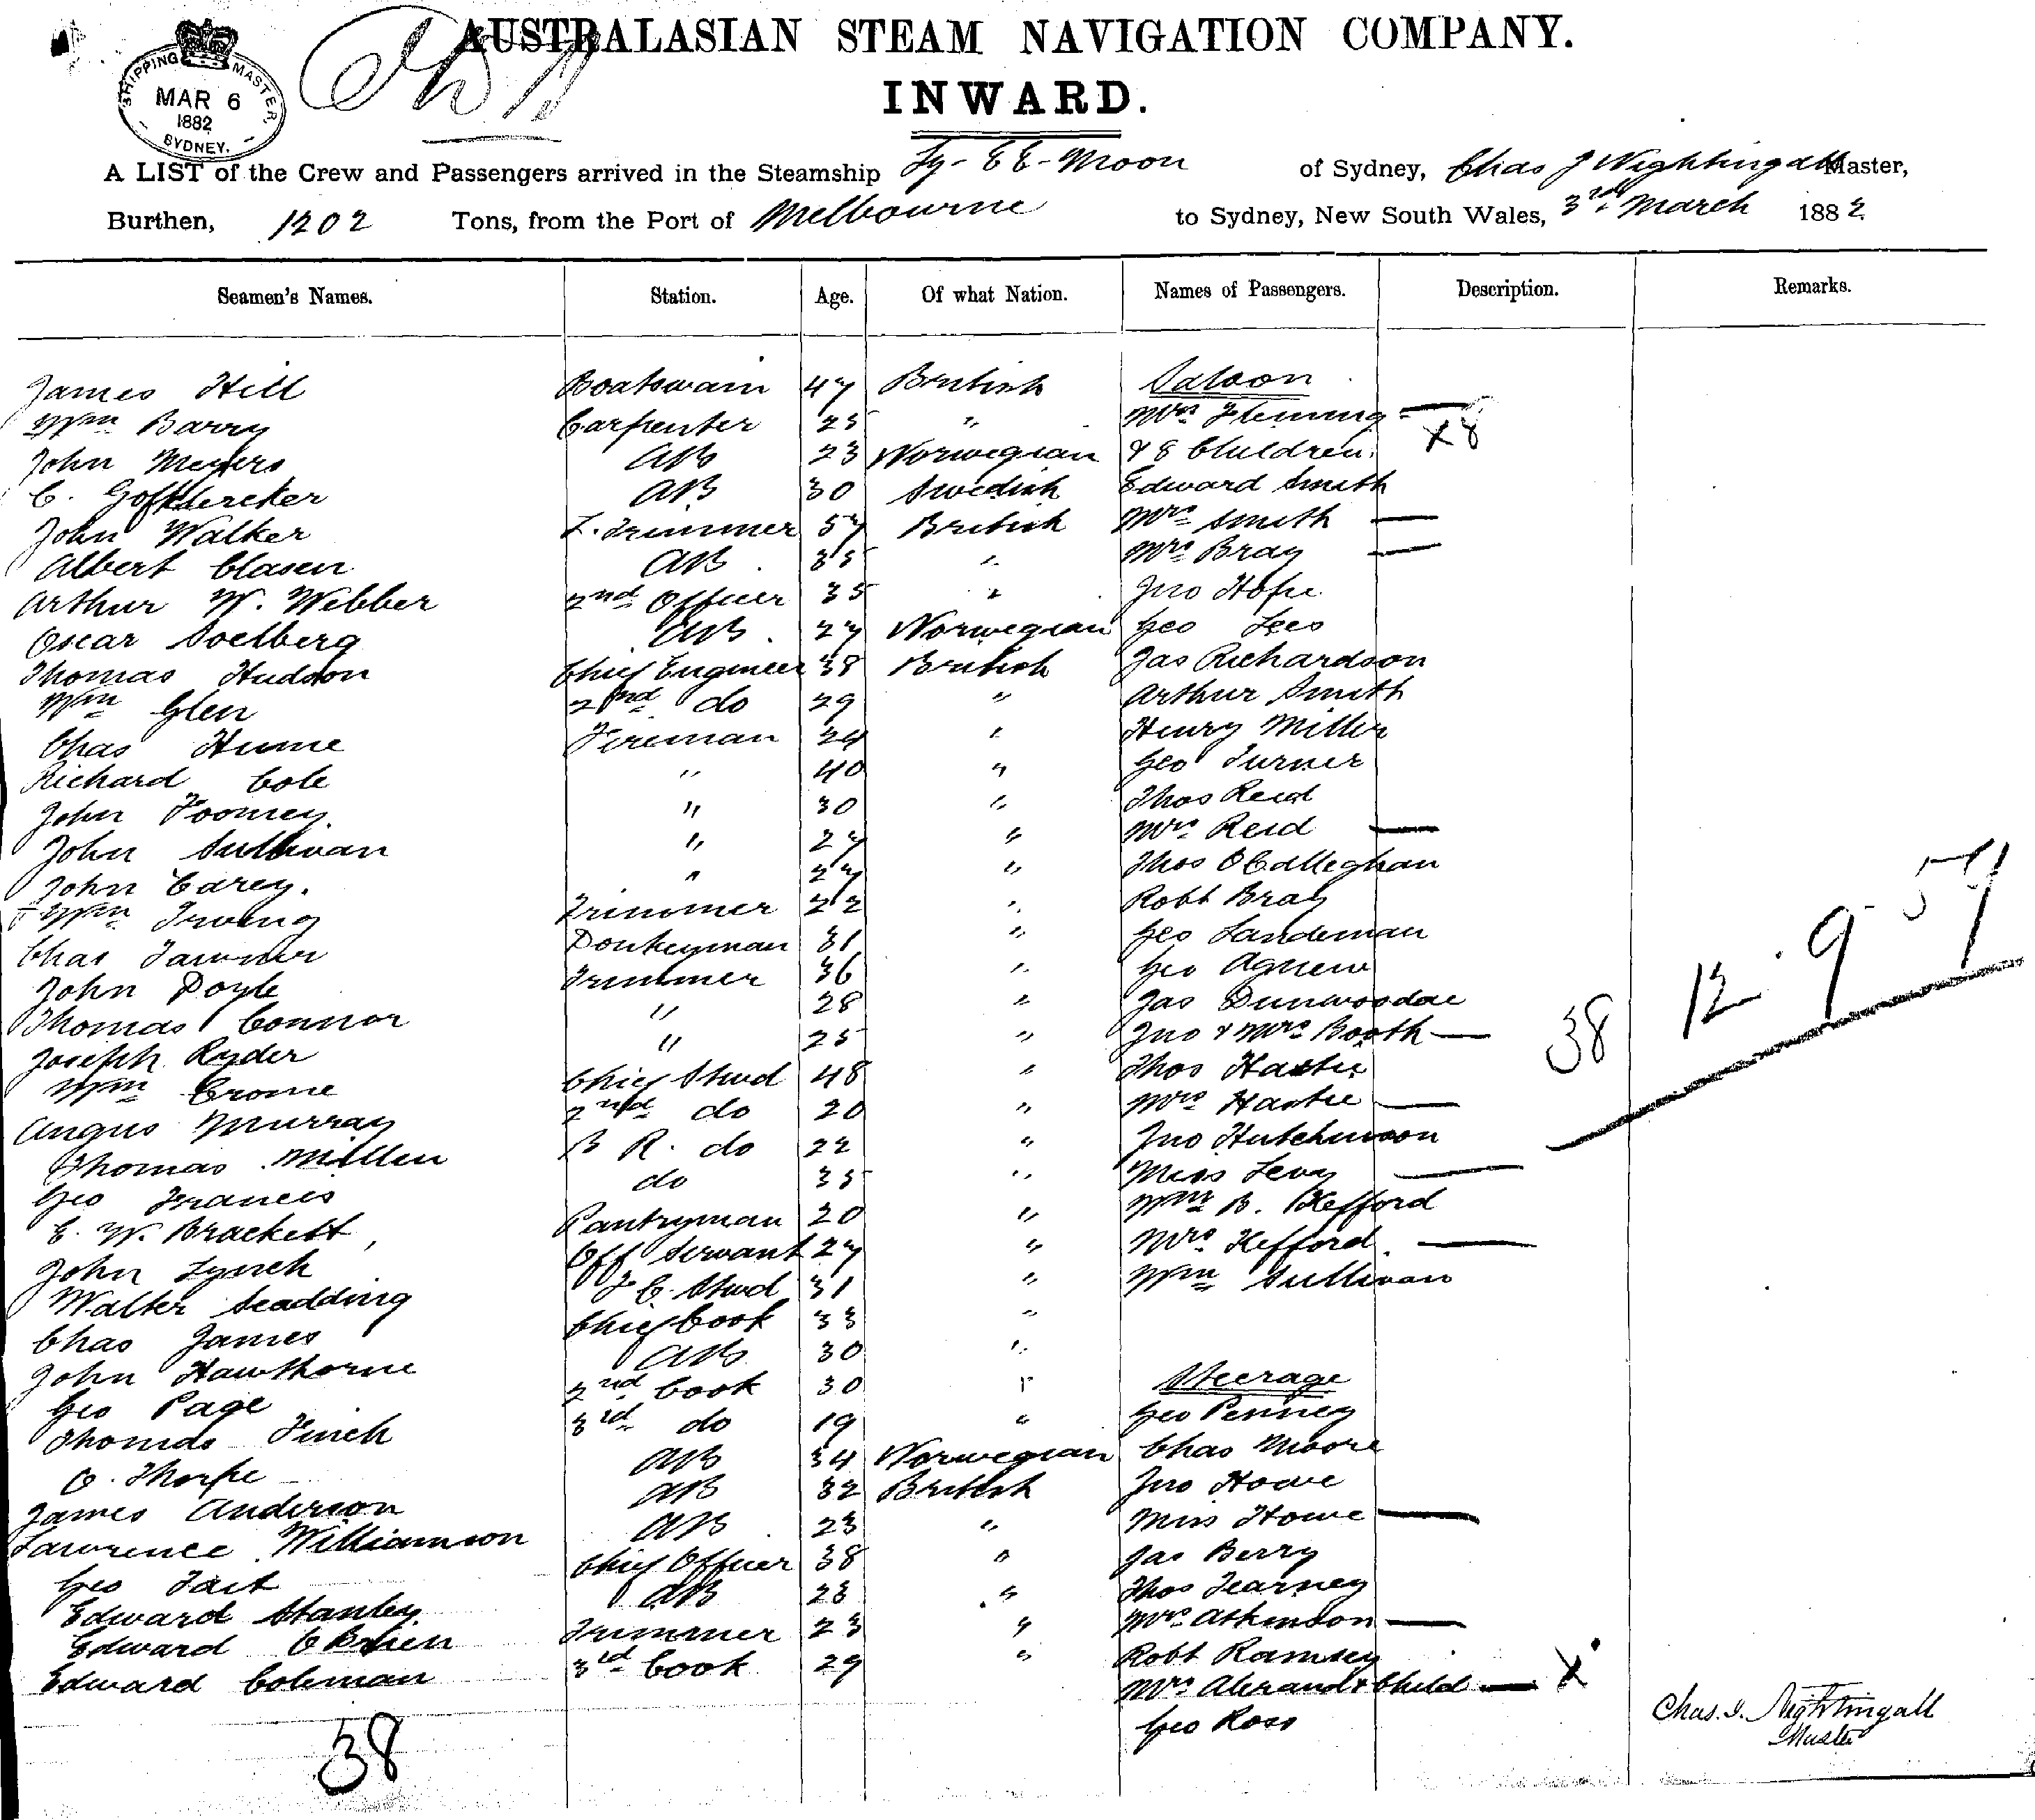 AUSTRALASIAN STEAM NAVIGATION COMPANY.
INWARD.
SHIPPING MASTER, MAR 6 1882 SYDNEY.
A LIST of the Crew and Passengers arrived in the Steamship Ly-EE-Moon of Sydney, Chas J Nightingall Master,
Burthen, 1202 Tons, from the Port of Melbourne to Sydney, New South Wales, 3rd March 1882
Seamen's Names. Station. Age. Of what Nation. Names of Passengers. Description. Remarks.
James Hill Boatswain 47 British Saloon
Wm Barry Carpenter 25 " Mrs Fleming —
John Meyers AB 23 Norwegian & 8 Children x8
C. AB 30 Swedish Edward Smith
John Walker L. Trimmer 57 British Mrs Smith —
Albert Clasen AB 35 " Mrs Bray —
Arthur W. Webber 2nd Officer 35 " Jno Hope
Oscar Soelberg AB 27 Norwegian Geo Lees
Thomas Hudson Chief Engineer 38 British Jas Richardson
Wm Glen 2nd do 29 " Arthur Smith
Chas Hume Fireman 24 " Henry Miller
Richard Cole " 40 " Geo Turner
John Toomey " 30 " Thos Reid
John Sullivan " 27 " Mrs Reid —
John Carey. " 27 " Thos OCalleghan
Wm Irving Trimmer 22 " Robt Bray
Chas Donkeyman 31 " Geo Landeman
John Doyle Trimmer 36 " Geo Agnew
Thomas Connor " 28 " Jas Dunwoodie
Joseph Ryder " 25 " Jno & Mrs Booth —
Wm Crome Chief Stwd 48 " Thos Hastie
Angus Murray 2nd do 20 " Mrs Hastie —
Thomas Millen B R. do 22 " Jno Hutchinson
Geo Francis do 35 " Miss Levy —
E. W. Brackett Pantryman 20 " Wm B. Hefford
John Lynch Off Servant 27 " Mrs Hefford —
Walter Scadding F C. Stwd 31 " Wm Sullivan
Chas James Chief Cook 33 "
John Hawthorne AB 30 "
Geo Page 2nd Cook 30 " Steerage
Thomas Finch 3rd do 19 " Geo Penney
O. Thorpe AB 34 Norwegian Chas Moore
James Anderson AB 32 British Jno Howe
Lawrence Williamson AB 23 " Miss Howe —
Geo Tait Chief Officer 38 " Jas Berry
Edward Stanley AB 23 " Thos Tearney
Edward OBrien Trimmer 23 " Mrs Atkinson —
Edward Coleman 3rd Cook 29 " Robt Ramsey
Mrs & Child — x
Geo Ross
38
38 12.9.57
Chas. J. Nightingall
Master